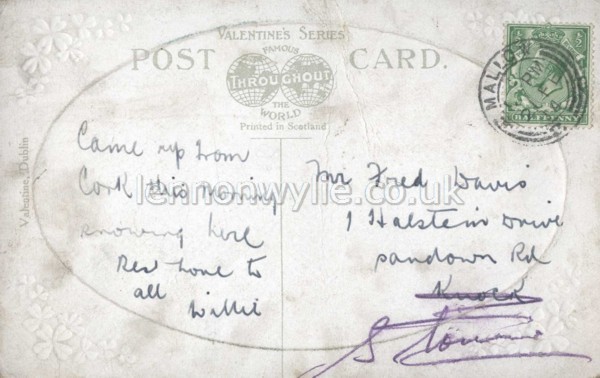 VALENTINE'S SERIES
POST CARD.
FAMOUS
THROUGHOUT
THE
WORLD
Printed in Scotland
MALLOW
HALFPENNY
Valentine, Dublin
lennonwylie.co.uk
Came up from
Cork this morning
snowing here
Best love to
all
Willie
Mr Fred Davis
1 Halstein Drive
sandown Rd
Knock